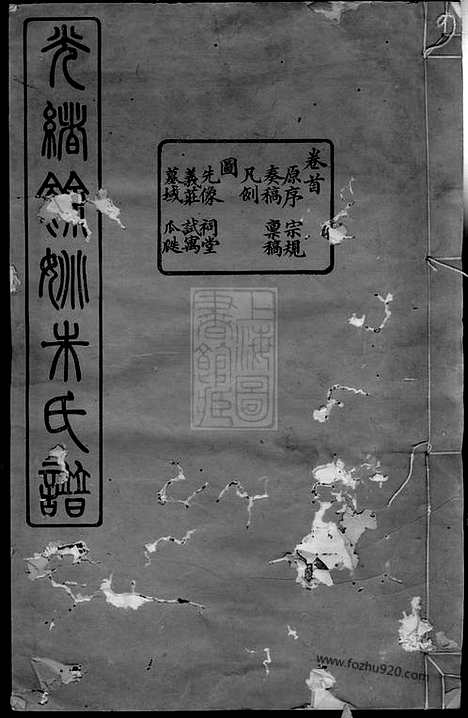 光緒餘姚朱氏譜
卷首
原序 宗規
奏稿 稟稿
凡例
圖
先像 祠堂
義莊 試寓
墓域 瓜瓞
上海圖書館藏
www.fozhu920.com